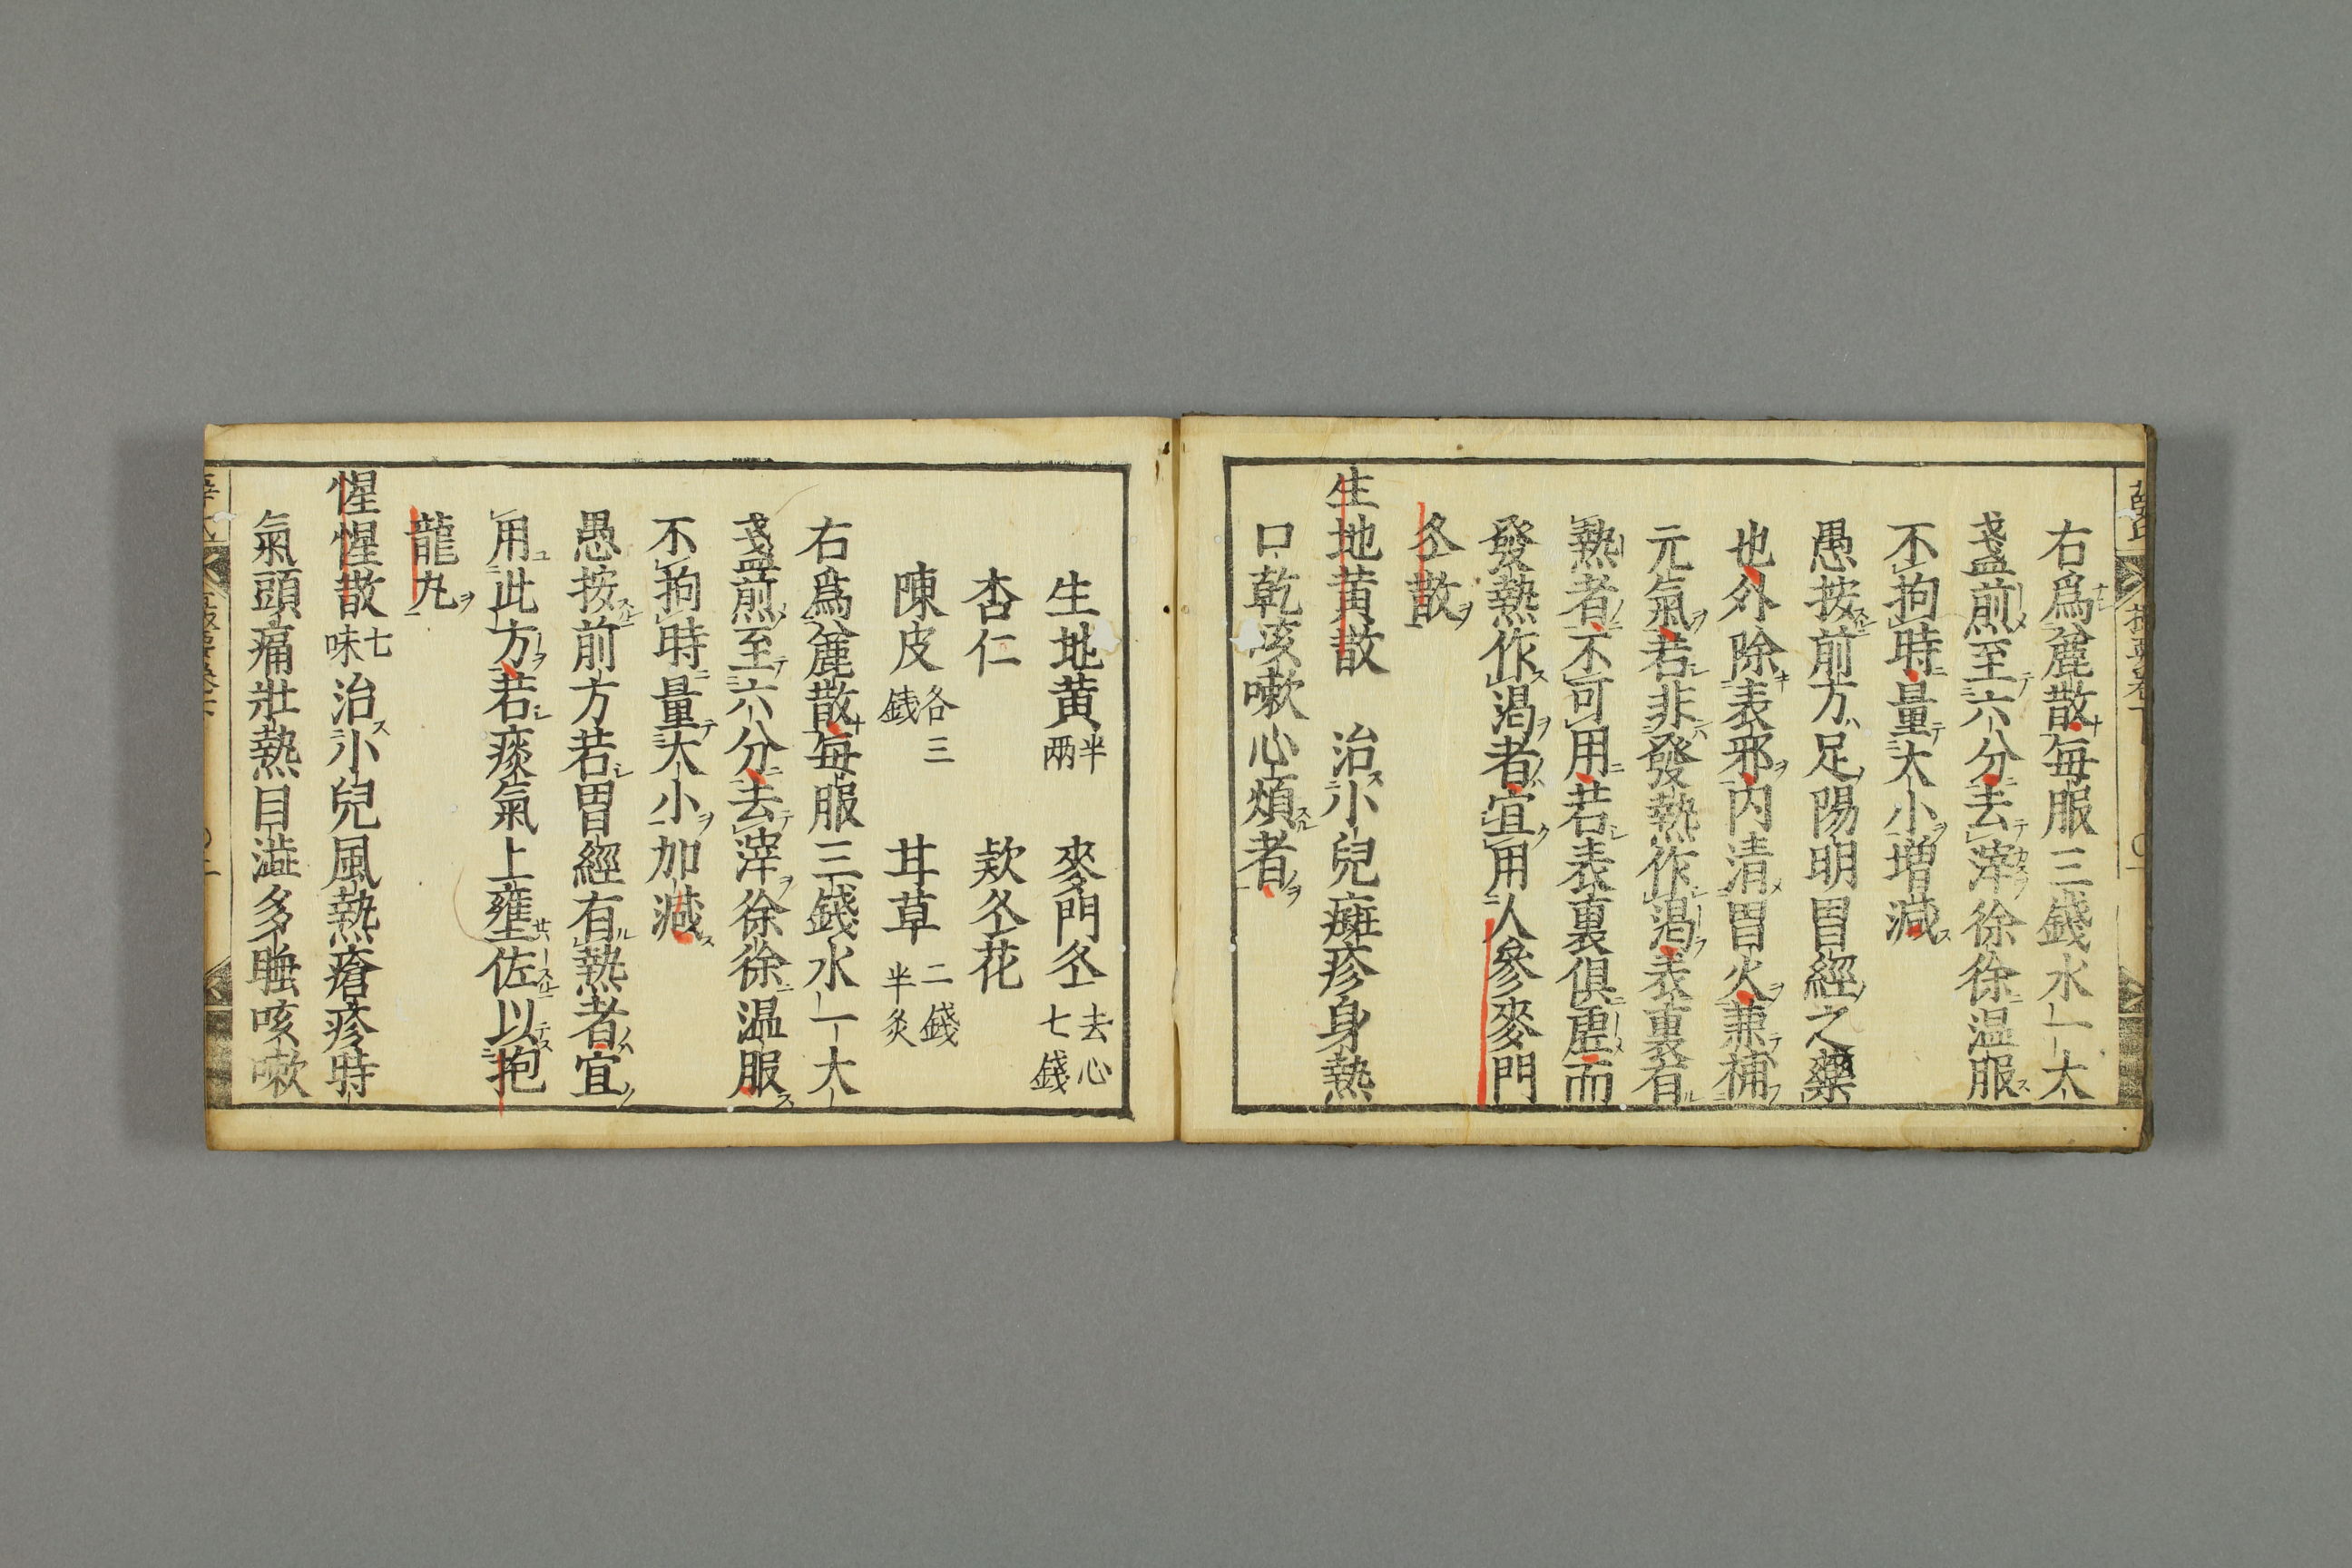 右爲麄散毎服三錢水一大
盞煎至六分去滓徐徐温服
不拘時量大小增減
愚按前方足陽明胃經之藥
也外除表邪内清胃火兼補
元氣若非發熱作渇表裏有
熱者不可用若表裏俱虛而
發熱作渇者宜用人參麥門
冬散
生地黃散　治小兒癍疹身熱
口乾咳嗽心煩者
生地黃半兩　麥門冬去心七錢
杏仁　款冬花
陳皮各三錢　甘草二錢半炙
右爲麄散每服三錢水一大
盞煎至六分去滓徐徐温服
不拘時量大小加減
愚按前方若胃經有熱者宜
用此方若痰氣上壅佐以抱
龍丸
惺惺散七味治小兒風熱瘡疹時
氣頭痛壯熱目澁多睡咳嗽